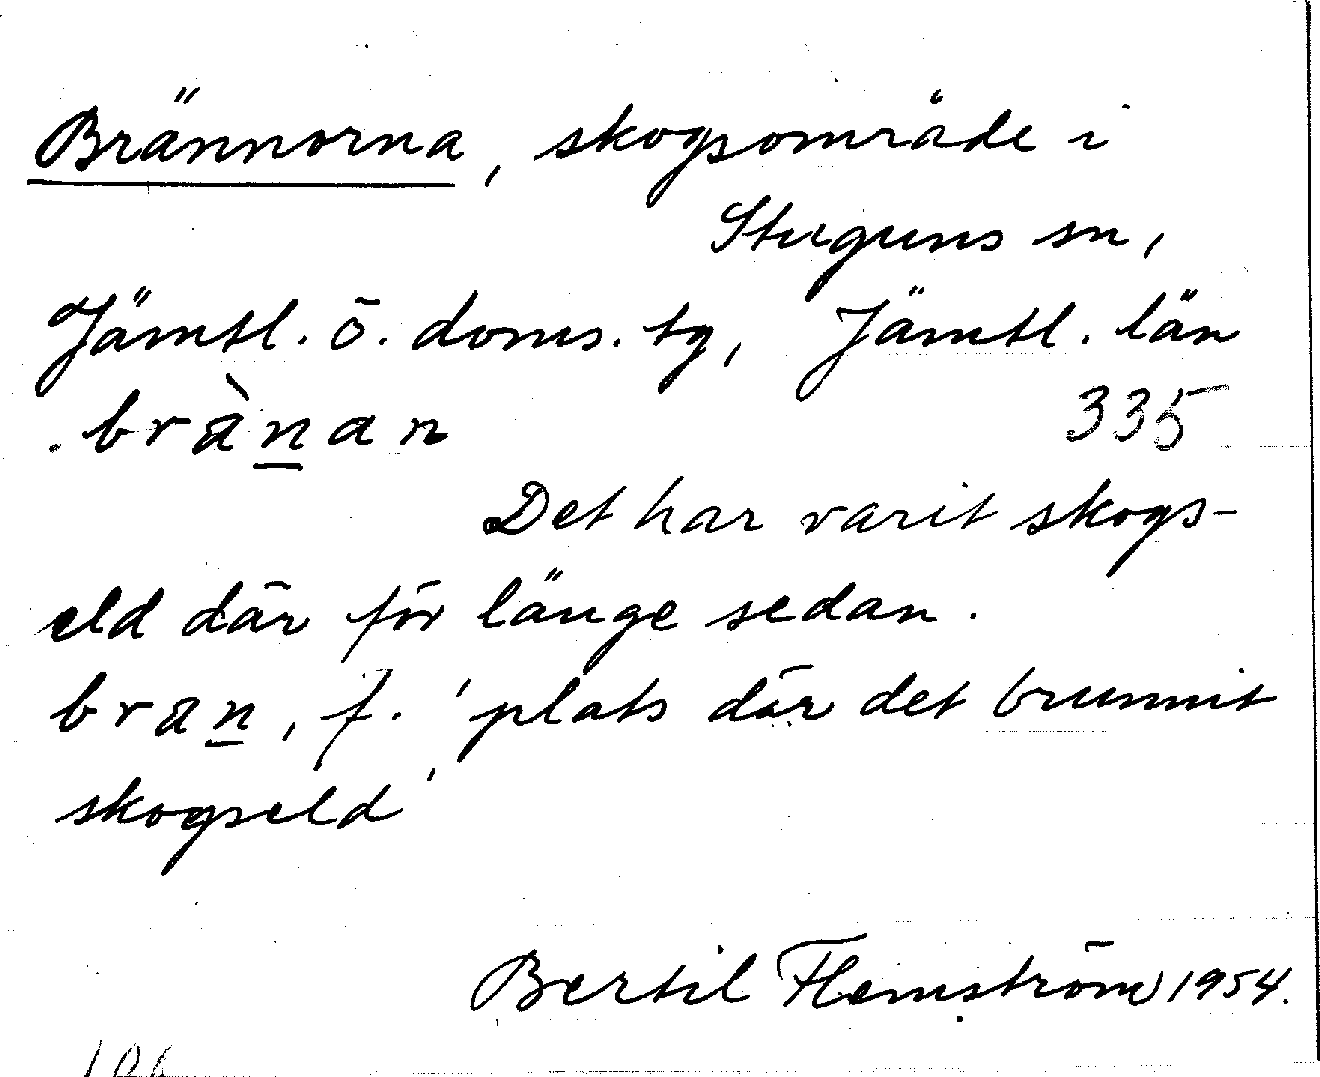 Brännorna, skogsområde i
Stuguns sn,
Jämtl. ö. doms. tg, Jämtl. län
. brànan 335
Det har varit skogs-
eld där för länge sedan.
bran, f. 'plats där det brunnit
skogseld'
Bertil Flemström 1954.